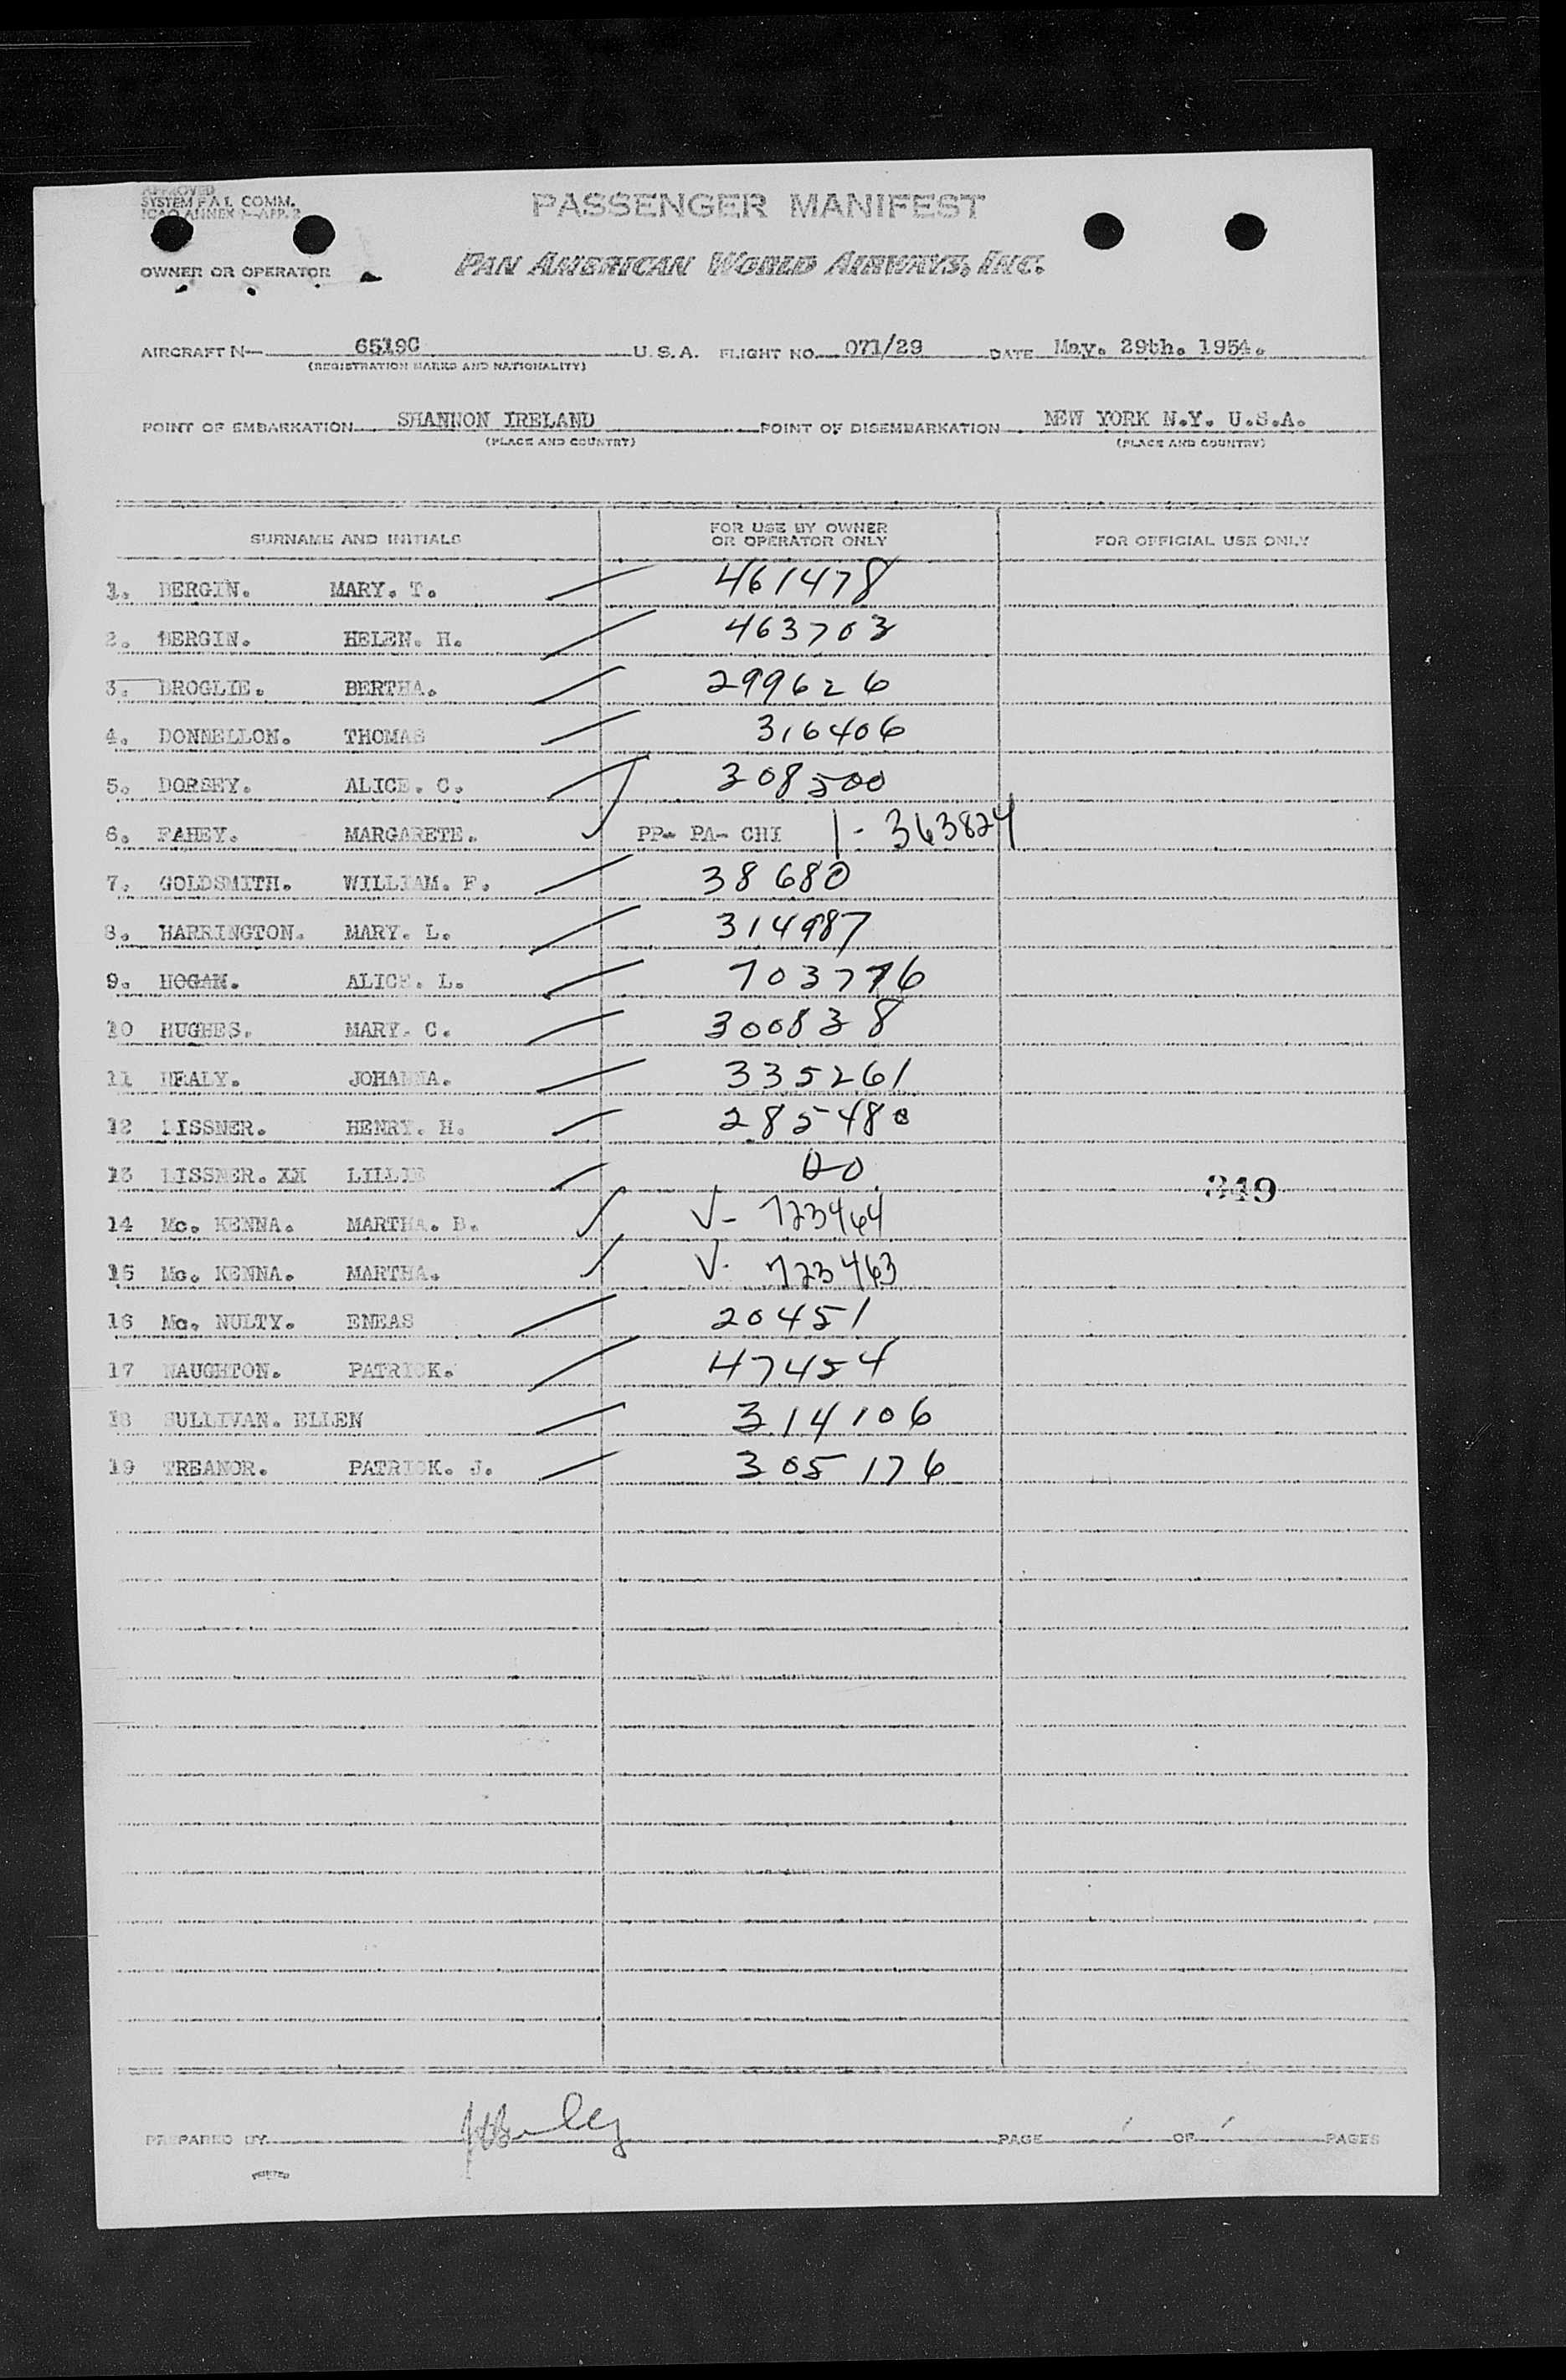 APPROVED
SYSTEM FAL COMM.
ICAO ANNEX 9—APP. 2
PASSENGER MANIFEST
OWNER OR OPERATOR PAN AMERICAN WORLD AIRWAYS, INC.
AIRCRAFT N— 6519C U.S.A. FLIGHT NO. 071/29 DATE May. 29th. 1954.
(REGISTRATION MARKS AND NATIONALITY)
POINT OF EMBARKATION SHANNON IRELAND POINT OF DISEMBARKATION NEW YORK N.Y. U.S.A.
(PLACE AND COUNTRY) (PLACE AND COUNTRY)
SURNAME AND INITIALS FOR USE BY OWNER OR OPERATOR ONLY FOR OFFICIAL USE ONLY
1. BERGIN. MARY. T. 461478
2. BERGIN. HELEN. H. 463703
3. BROGLIE. BERTHA. 299626
4. DONNELLON. THOMAS 316406
5. DORSEY. ALICE. C. 308500
6. FAHEY. MARGARETE. PP- PA- CHI 1- 363824
7. GOLDSMITH. WILLIAM. F. 38680
8. HARRINGTON. MARY. L. 314987
9. HOGAN. ALICE. L. 703776
10 HUGHES. MARY. C. 300838
11 HEALY. JOHANNA. 335261
12 LISSNER. HENRY. H. 285480
13 LISSNER. XX LILLIE DO. 349
14 Mc. KENNA. MARTHA. B. V- 723464
15 Mc. KENNA. MARTHA. V- 723463
16 Mc. NULTY. ENEAS 20451
17 NAUGHTON. PATRICK. 47454
18 SULLIVAN. ELLEN 314106
19 TREANOR. PATRICK. J. 305176
PREPARED BY PAGE 1 OF 1 PAGES
PRINTED